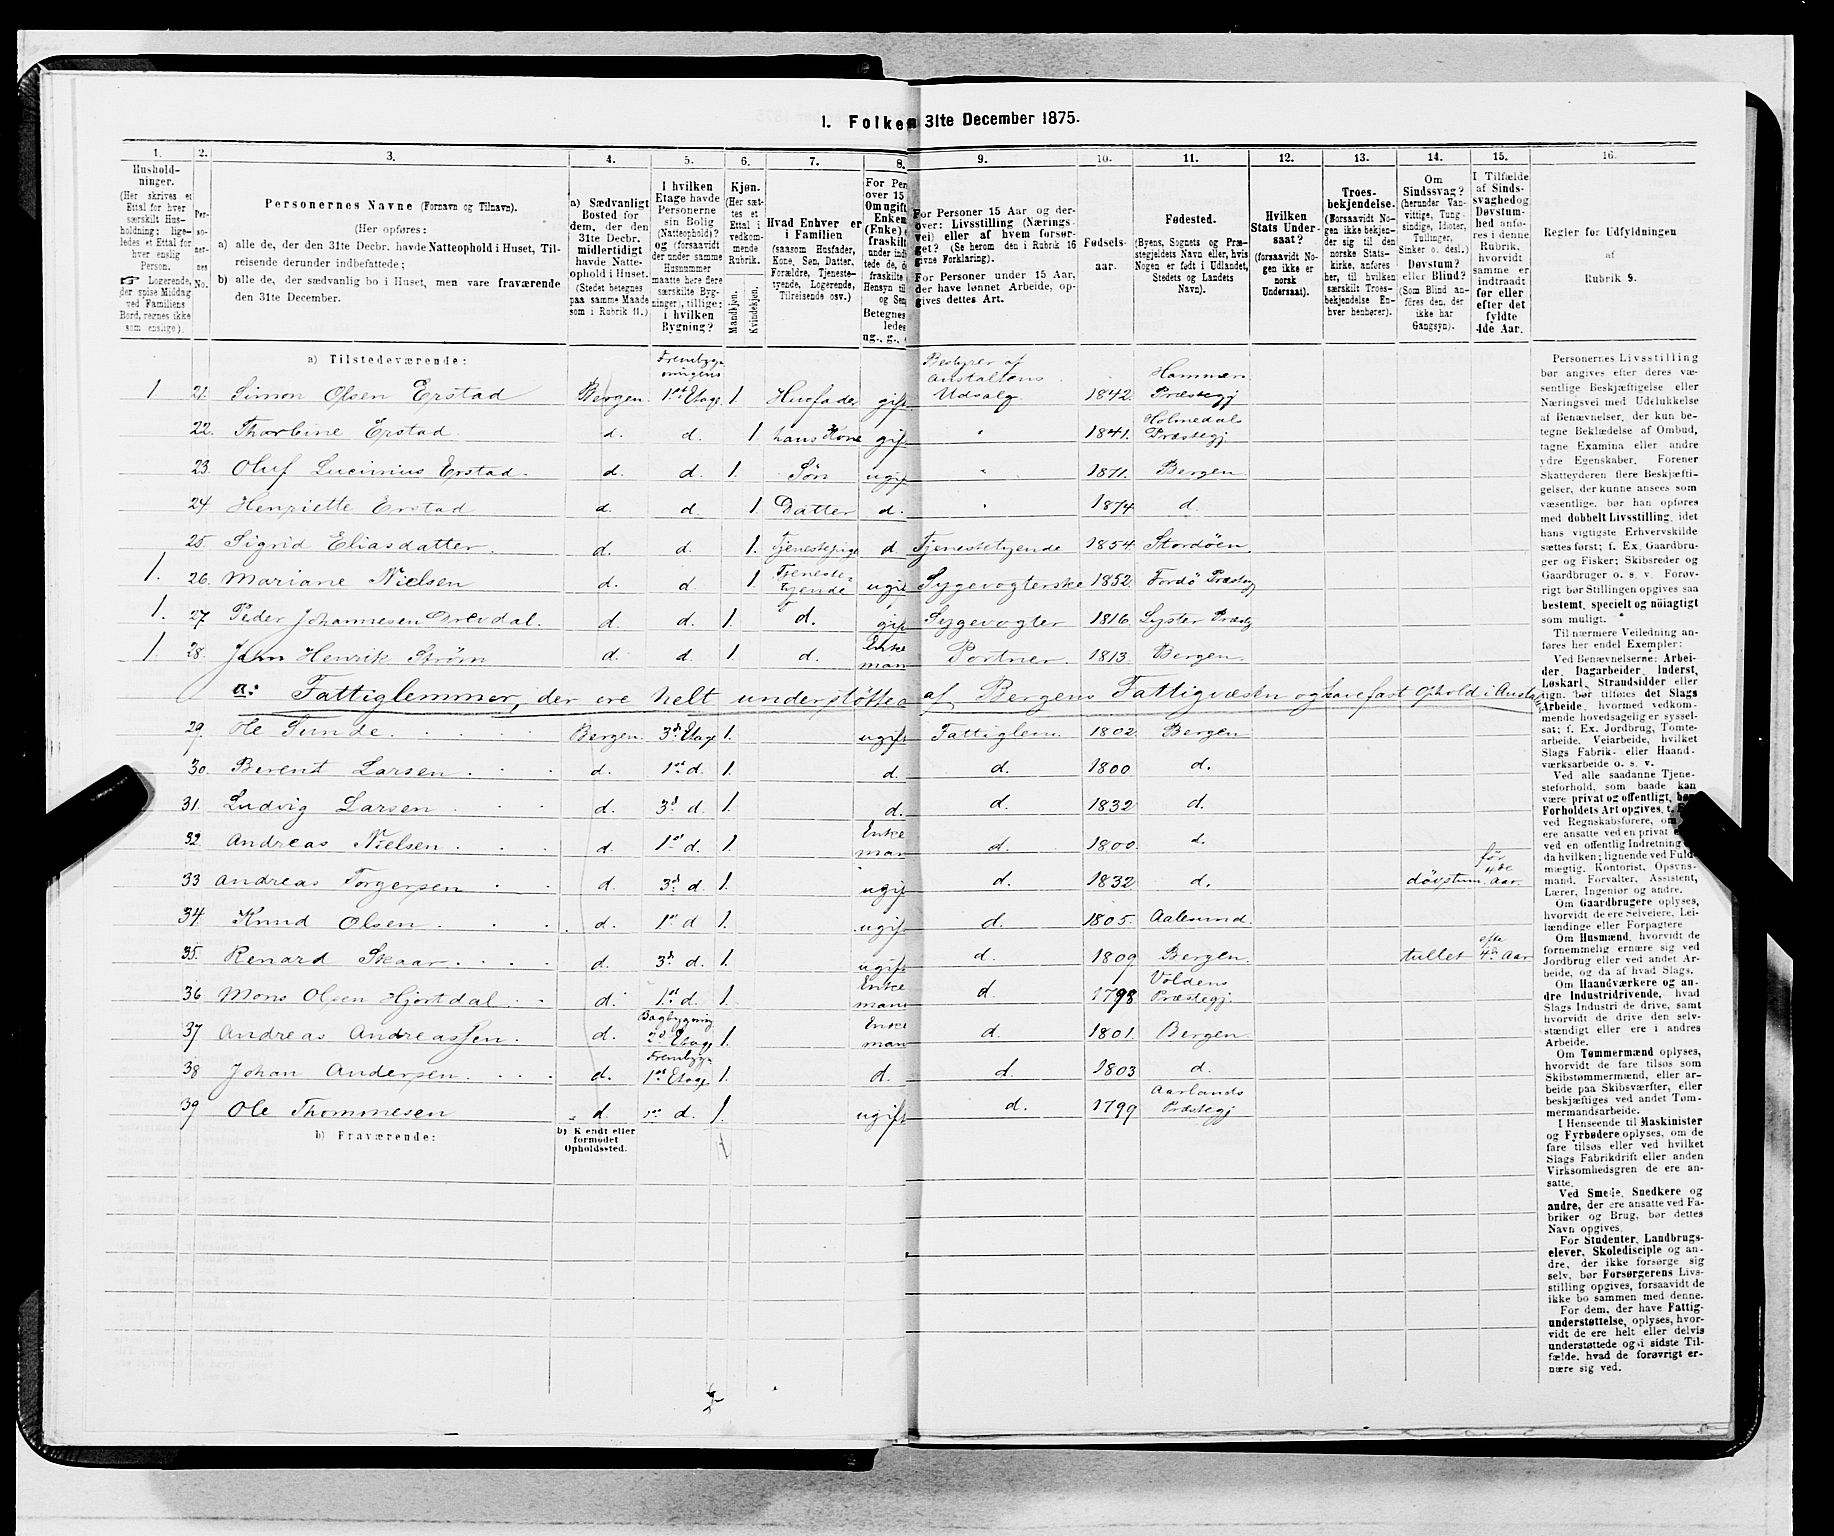 1. Folke 31te December 1875.
1. 2. 3. 4. 5. 6. 7. 8. 9. 10. 11. 12. 13. 14. 15. 16.
Hushold-
ninger.
(Her skrives et
Ettal for hver
særskilt Hus-
holdning; lige-
ledes et Ettal for
hver enslig
Person.
☞ Logerende,
der spise Middag
ved Familiens
Bord, regnes ikke
som enslige).
Per-
so-
ner-
nes
No.
Personernes Navne (Fornavn og Tilnavn).
(Her opføres:
a) alle de, der den 31te Decbr. havde Natteophold i Huset, Til-
reisende derunder indbefattede;
b) alle de, der sædvanlig bo i Huset, men vare fraværende
den 31te December.
a) Sædvanligt
Bosted for
dem, der den
31te Decbr.
midlertidigt
havde Natte-
ophold i Huset.
(Stedet betegnes
paa samme Maade
som i Rubrik 11.)
I hvilken
Etage havde
Personerne
sin Bolig
(Natteophold)?
og (forsaavidt
der under samme
Husnummer
maatte høre flere
særskilte Byg-
ninger), tillige:
i hvilken
Bygning?
Kjøn.
(Her sæt-
tes et
Ettal i
vedkom-
mende
Rubrik.
Mandkjøn.
Kvindekjøn.
Hvad Enhver er
i Familien
(saasom Husfader,
Kone, Søn, Datter,
Forældre, Tjeneste-
tyende, Logerende,
Tilreisende osv.)
For Per
over 15
Om ugift
Enken
(Enke) e
fraskilt
under indb
tede de, d
fraskilte
Hensyn til
og Sen
Betegnes
ledes
ug., g.,
For Personer 15 Aar og der-
over: Livsstilling (Nærings-
vei) eller af hvem forsør-
get? (Se herom den i Rubrik 16
givne Forklaring).
For Personer under 15 Aar,
der have lønnet Arbeide, op-
gives dettes Art.
Fødsels-
aar.
Fødested.
(Byens, Sognets og Præ-
stegjeldets Navn eller, hvis
Nogen er født i Udlandet,
Stedets og Landets
Navn).
Hvilken
Stats Under-
saat?
(forsaavidt No-
gen ikke er
norsk
Undersaat).
Troes-
bekjendelse.
(Forsaavidt No-
gen ikke bekjen-
der sig til den
norske Stats-
kirke, anføres
her, til hvilken
særskilt Troes-
bekjendelse En-
hver henhører).
Om
Sindssvag?
(herunder Van-
vittige, Tung-
sindige, Idioter,
Tullinger,
Sinker o. desl.)
Døvstum?
eller Blind?
(Som Blind an-
føres den, der
ikke har
Gangsyn).
I Tilfælde
af Sinds-
svaghed og
Døvstum-
hed anfø-
res i denne
Rubrik,
hvorvidt
samme er
indtraadt
før eller
efter det
fyldte
4de Aar.
Regler for Udfyldningen
af
Rubrik 9.
a) Tilstedeværende:
1 21. Simon Olsen Erstad Bergen Frembygningens 1st Etage 1. Husfader gift Bestyrer af Anstaltens Udsalg 1842. Hammer Præstegj
22. Thorbine Erstad d. d. 1 hans Kone gift " 1841. Holmedals Præstegj
23. Oluf Lucinius Erstad. d. d. 1. Søn ugift " 1871. Bergen.
24. Henriette Erstad d. d 1. Datter d. " 1874 d.
25. Sigrid Eliasdatter. d. d. 1. Tjenestepige d. Tjenestetyende 1854. Stordøen.
1. 26. Mariane Nielsen d. d. 1. Tjeneste-tyende ugift Sygevogterske 1852. Fordø Præstegj
1. 27. Peder Johannesen Drevdal. d. d. 1. d. gift Sygevogter 1816. Lyster Præstg
1 28. John Henrik Strøm d. d. 1. d. Enke man Portner. 1813. Bergen.
a: Fattiglemmer, der ere helt understøttea af Bergens Fattigvæsen og have fast Ophold i Anstal
29. Ole Sunde. Bergen. 3d Etage 1. ugift Fattiglem. 1802. Bergen
30. Berent Larsen d. 1st d. 1. d. d. 1800 d.
31. Ludvig Larsen d. 3d d. 1. d. d. 1832 d.
32. Andreas Nielsen. d. 1st d. 1. Enke man d. 1800. d.
33 Andreas Torgersen d. 3d d. 1. ugift d. 1832 d. døvstum før 4de Aar.
34. Knud Olsen d. 1st d 1. ugift d. 1805. Aalesund.
35. Renard Skaar. d. 3d d. 1. ugift d. 1809 Bergen. tullet efte 4de Aar
36 Mons Olsen Hjortdal d. 1st d. 1. Enke man d. 1798 Voldens Præstegj.
37 Andreas Andreassen. d. Bagbygning 2d Etage 1. Enke man d. 1801. Bergen
38 Johan Andersen. d. Frembyg. 1st Etage 1. d. d. 1803 d.
39 Ole Thommesen d. 1st d. 1. ugift d. 1799 Aarlands Præstegj
b) Fraværende:
b) Kendt eller
formodet
Opholdssted.
Personernes Livsstilling
bør angives efter deres væ-
sentlige Beskjæftigelse eller
Næringsvei med Udelukkelse
af Benævnelser, der kun be-
tegne Beklædelse af Ombud,
tagne Examina eller andre
ydre Egenskaber. Forener
Skatteyderen flere Beskjæfti-
gelser, der kunne ansees som
væsentlige, bør han opføres
med dobbelt Livsstilling, idet
hans vigtigste Erhvervskilde
sættes først; f. Ex. Gaardbru-
ger og Fisker; Skibsreder og
Gaardbruger o. s. v. Forøv-
rigt bør Stillingen opgives saa
bestemt, specielt og nöiagtigt
som muligt.
Til nærmere Veiledning an-
føres her endel Exempler:
Ved Benævnelserne: Arbei-
der, Dagarbeider, Inderst,
Løskarl, Strandsidder eller
lign. bør tilføres det Slags
Arbeide, hvormed vedkom-
mende hovedsagelig er syssel-
sat; f. Ex. Jordbrug, Tomte-
arbeide, Veiarbeide, hvilket
Slags Fabrik- eller Haand-
værksarbeide o. s. v.
Ved alle saadanne Tjene-
steforhold, som baade kan
være privat og offentligt, bør
Forholdets Art opgives,
ved Regnskabsførere,
ere ansatte ved en privat
ved en offentlig Indretning
da hvilken; lignende ved Fuld-
mægtig, Kontorist, Opsyns-
mand, Forvalter, Assistent,
Lærer, Ingeniør og andre.
Om Gaardbrugere oplyses,
hvorvidt de ere Selveiere, Lei-
lændinge eller Forpagtere
Om Husmænd, hvorvidt de
fornemmelig ernære sig ved
Jordbrug eller ved andet Ar-
beide, og da af hvad Slags.
Om Haandværkere og an-
dre Industridrivende, hvad
Slags Industri de drive, samt
hvorvidt de drive den selv-
stændigt eller ere i andres
Arbeide.
Om Tømmermænd oplyses,
hvorvidt de fare tilsøs som
Skibstømmermænd, eller ar-
beide paa Skibsværfter, eller
beskjæftiges ved andet Tøm-
mermandsarbeide.
I Henseende til Maskinister
og Fyrbødere oplyses, om de
fare tilsøs eller ved hvilket
Slags Fabrikdrift eller anden
Virksomhedsgren de ere an-
satte.
Ved Smede, Snedkere og
andre, der ere ansatte ved Fa-
briker og Brug, bør dettes
Navn opgives.
For Studenter, Landbrugs-
elever, Skoledisciple og an-
dre, der ikke forsørge sig
selv, bør Forsørgerens Livs-
stilling opgives, forsaavidt de
ikke bo sammen med denne.
For dem, der have Fattig-
understøttelse, oplyses, hvor-
vidt de ere helt eller delvis
understøttede og i sidste Til-
fælde, hvad de forøvrigt er-
nære sig ved.